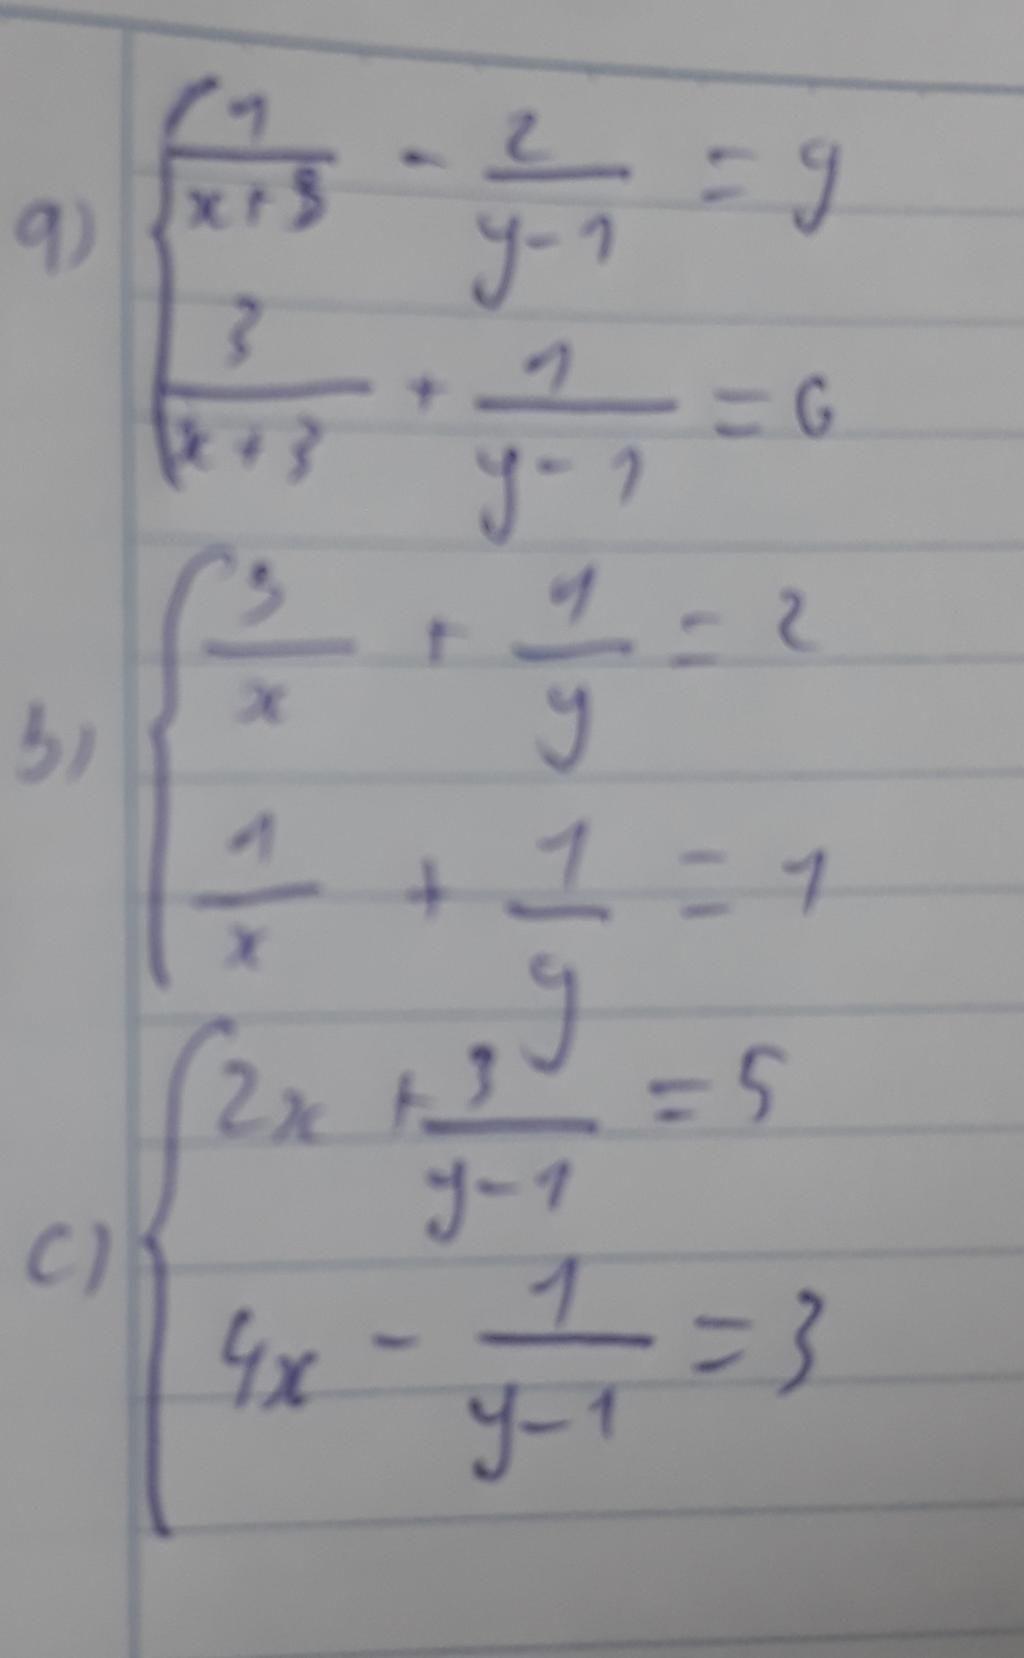 a) { 1/(x+3) - 2/(y-1) = 9
3/(x+3) + 1/(y-1) = 6
b) { 3/x + 1/y = 2
1/x + 1/y = 1
c) { 2x + 3/(y-1) = 5
4x - 1/(y-1) = 3